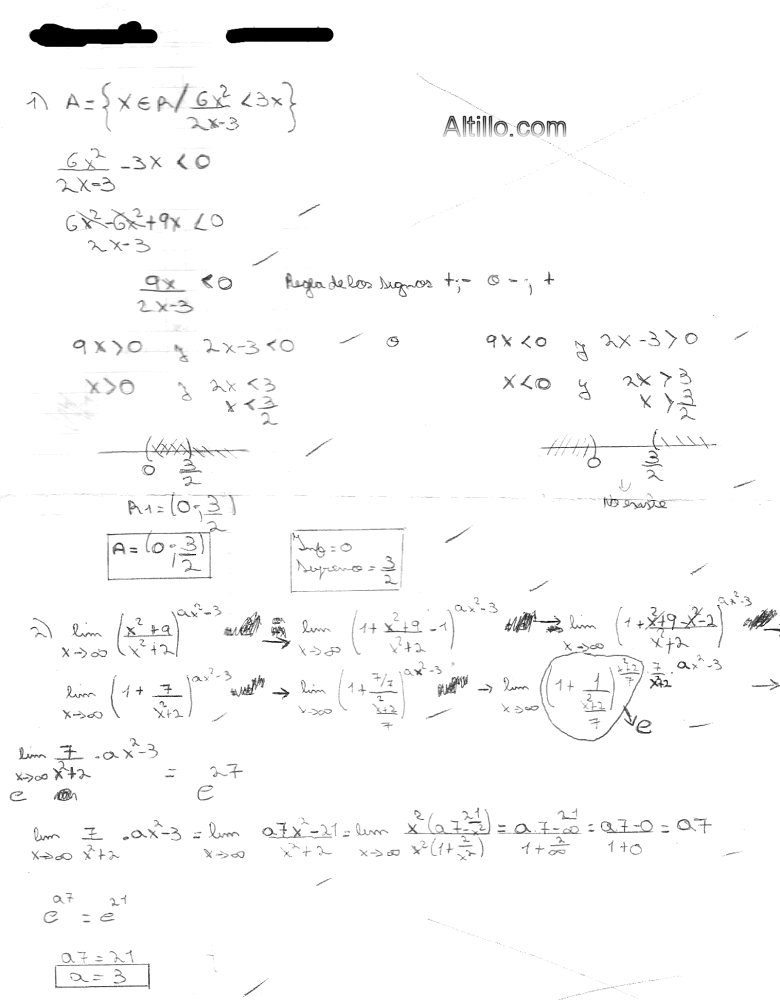 1) A = {x ∈ R / 6x²/(2x-3) < 3x}
Altillo.com
6x²/(2x-3) - 3x < 0
(6x² - 6x² + 9x)/(2x-3) < 0
9x/(2x-3) < 0 Regla de los signos +;- o -;+
9x > 0 y 2x-3 < 0 o 9x < 0 y 2x-3 > 0
x > 0 y 2x < 3 x < 0 y 2x > 3
x < 3/2 x > 3/2
0 3/2 0 3/2
↓
R1 = (0; 3/2) No existe
A = (0; 3/2) Inf = 0
Supremo = 3/2
2) lim x→∞ ((x²+9)/(x²+2))^(ax²-3) = lim x→∞ (1 + (x²+9)/(x²+2) - 1)^(ax²-3) → lim x→∞ (1 + (x²+9-x²-2)/(x²+2))^(ax²-3) →
lim x→∞ (1 + 7/(x²+2))^(ax²-3) → lim x→∞ (1 + (7/7)/((x²+2)/7))^(ax²-3) → lim x→∞ (1 + 1/((x²+2)/7))^((x²+2)/7 · 7/(x²+2) · ax²-3) →
e
e^(lim x→∞ 7/(x²+2) · ax²-3) = e^27
lim x→∞ 7/(x²+2) · ax²-3 = lim x→∞ (a7x²-21)/(x²+2) = lim x→∞ x²(a7-21/x²)/(x²(1+2/x²)) = (a.7-21/∞)/(1+2/∞) = (a7-0)/(1+0) = a7
e^a7 = e^21
a7 = 21
a = 3